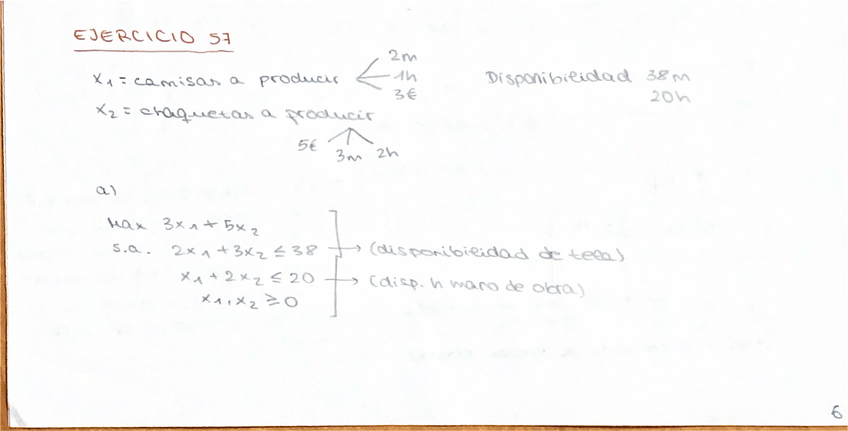 EJERCICIO 57
2m
x1 = camisas a producir 1h Disponibilidad 38m
3€ 20h
x2 = chaquetas a producir
5€ 3m 2h
a)
Max 3x1 + 5x2
s.a. 2x1 + 3x2 ≤ 38 → (disponibilidad de tela)
x1 + 2x2 ≤ 20 → (disp. h mano de obra)
x1, x2 ≥ 0
6